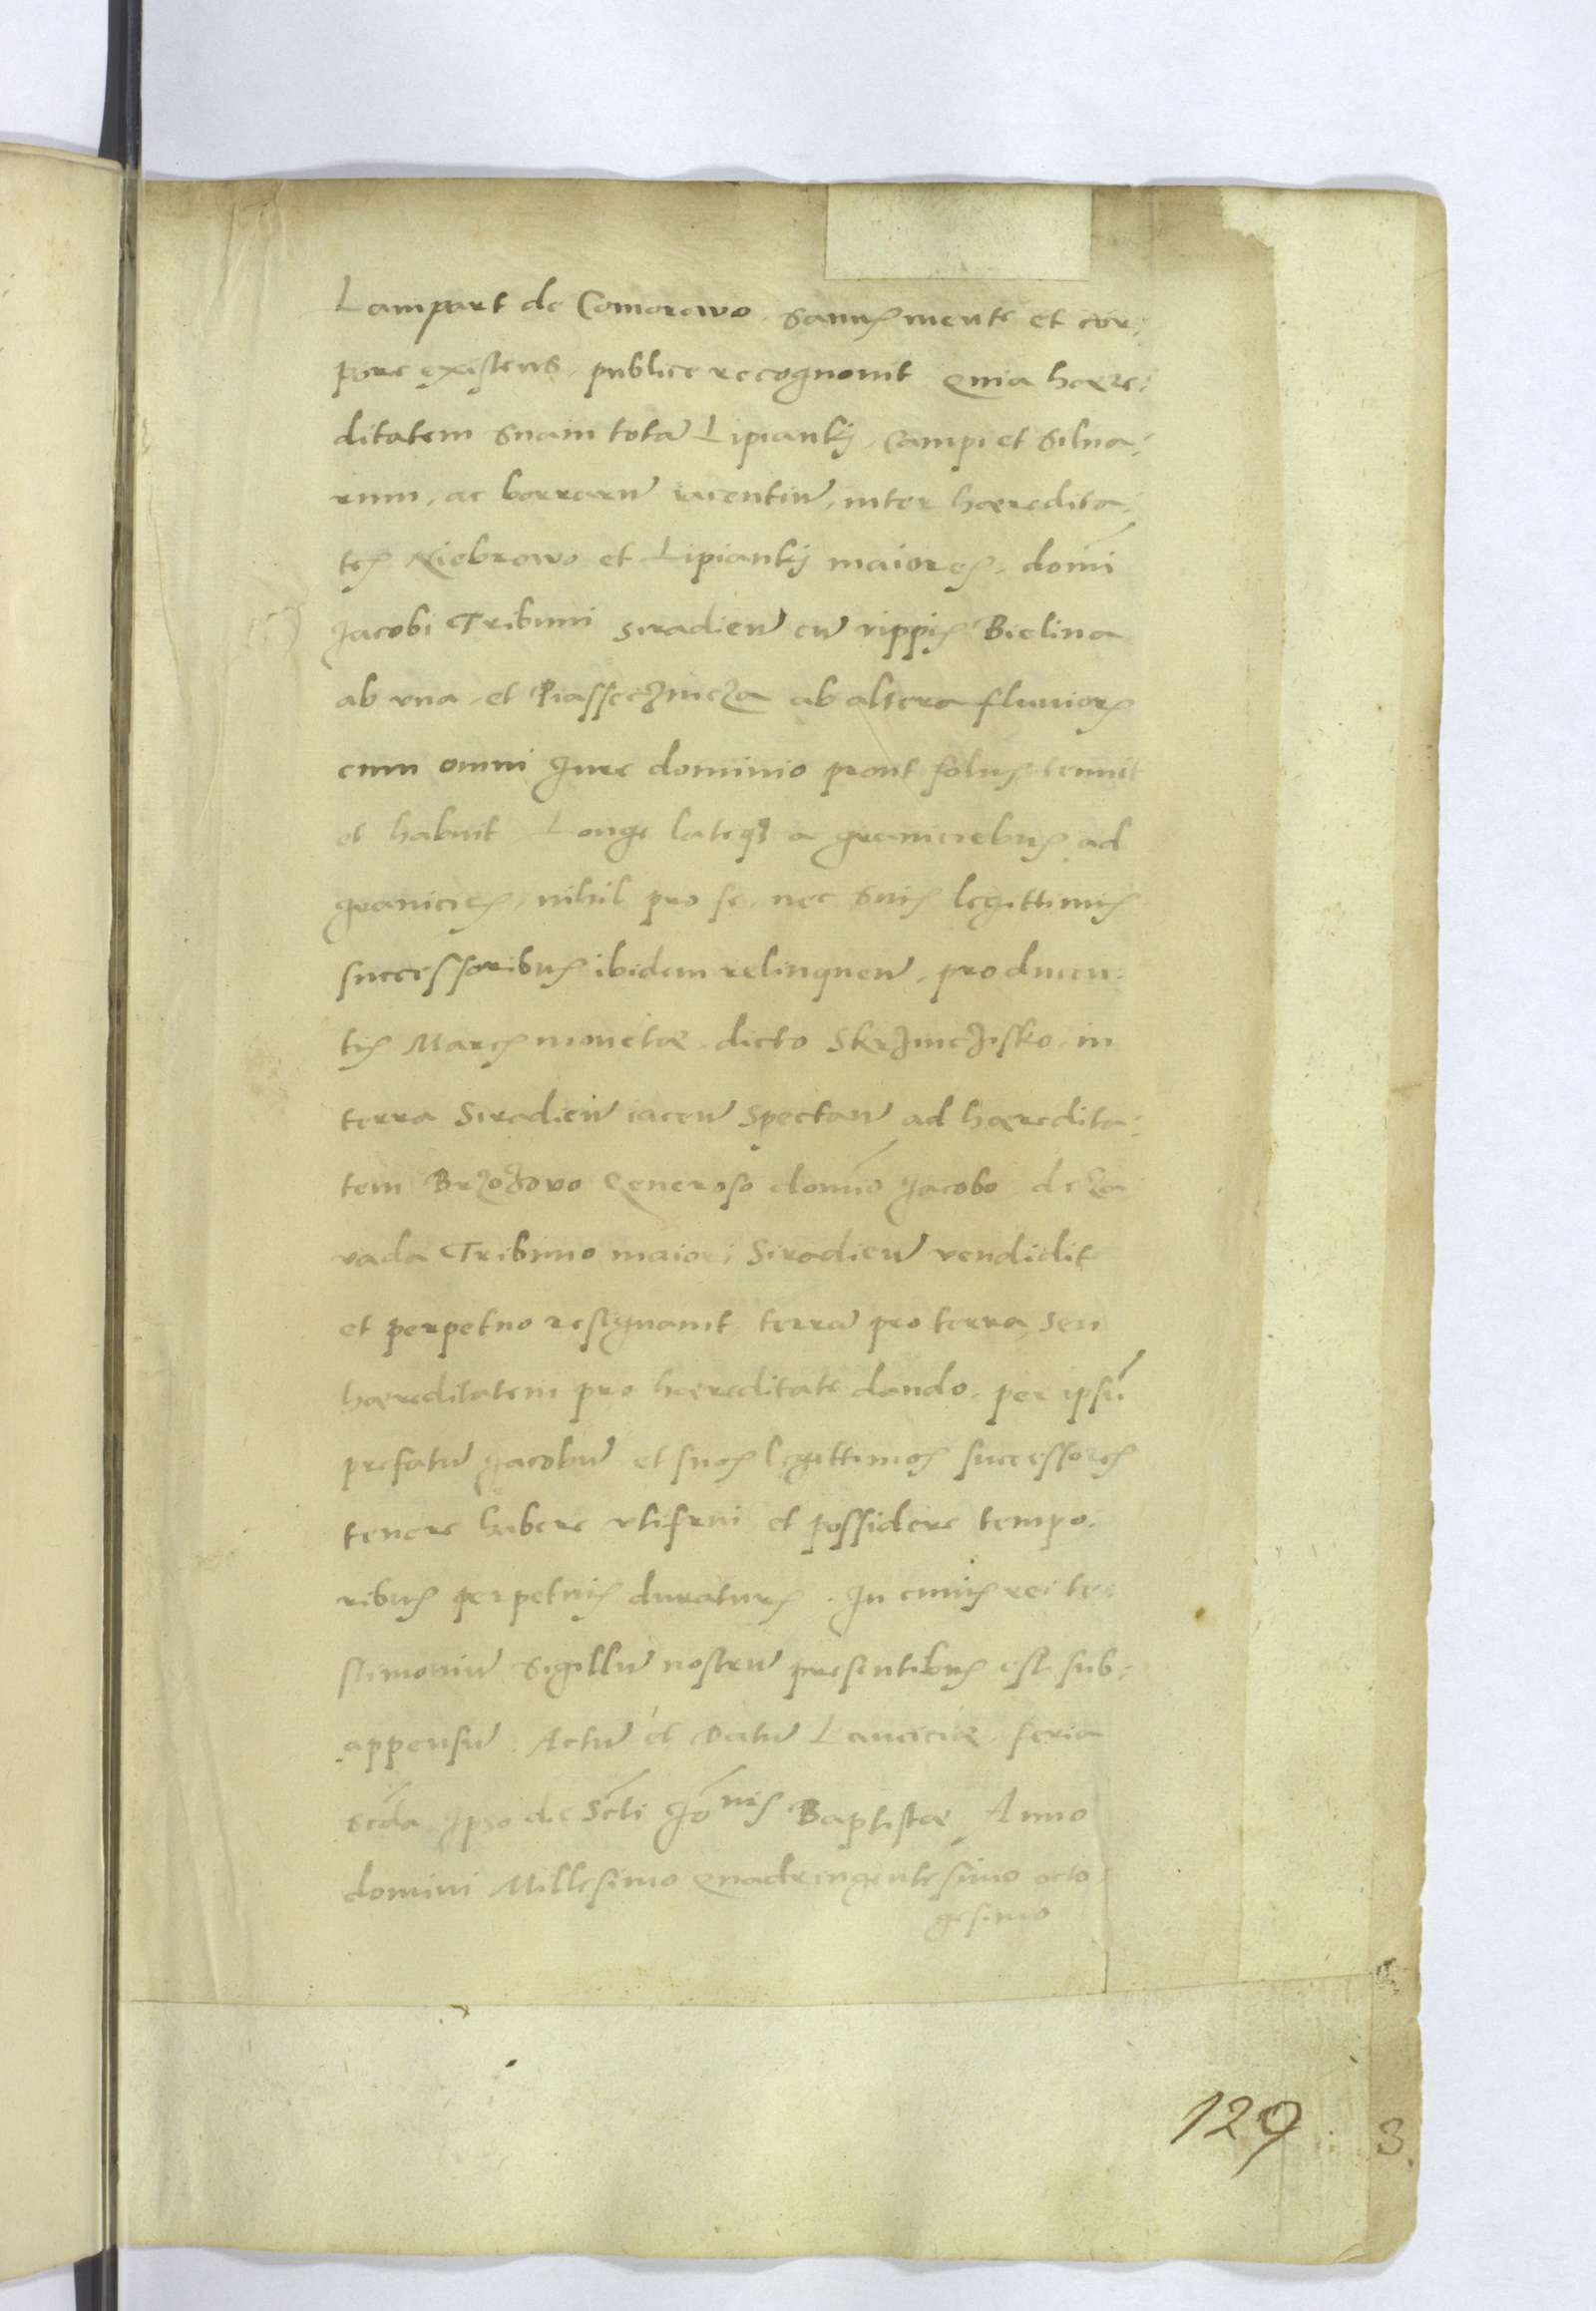 Lampart de Comorowo, sanus mente et cor:
pore existens, publice recognouit Quia haere:
ditatem suam totā Lipiankj, Campi et Silua:
rum, ac borrarū iacentiū, inter haeredita:
tes Niebrowo et Lipiankj maiores, domī
Jacobi Tribuni siradień cū rippis Bielina
ab vna, et Piassecznicza ab altera fluuiorȝ
cum omni Jure dominio prout solus tenuit
et habuit Longe lateqȝ a graniciebus ad
granicies, nihil pro se, nec suis legittimis
successoribus ibidem relinqueń, pro ducen:
tis Marcis monetae, dicto Skrzinczissko, in
terra Siradień iaceń spectań ad haeredita:
tem Brzozovo Generoso domīo Jacobo de Za
vada Tribuno maiori Siradień vendidit
et perpetuo resignauit terrā pro terra, seu
haereditatem pro haereditate dando, per ipsū
prefatū Jacobū et suos legittimos successores
tenere habere vtifrui et possidere tempo.
ribus perpetuis duraturis. In cuius rei te:
stimoniū sigillū nostrū presentibus est sub:
appensū. Actū et Datū Lanciciae, feria
scda ipso die Scti Joīs nis Baptistae, Anno
domini Millesimo Quadringentesimo octo
gesimo
129
3